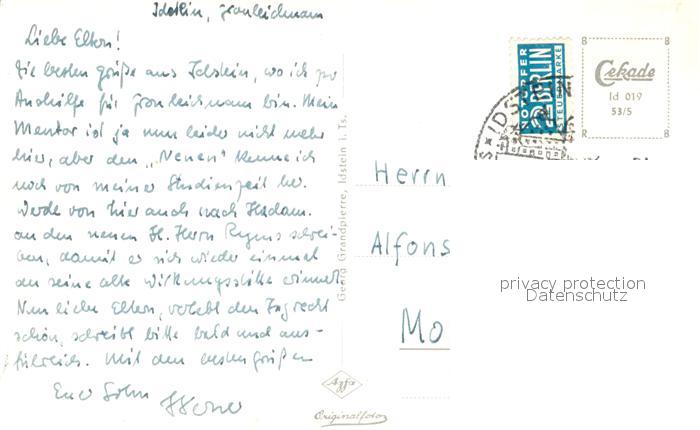 Idstein, Fronleichnam
Liebe Eltern!
Die besten Grüße aus Idstein, wo ich zur
Aushilfe für Fronleichnam bin. Mein
Mentor ist ja nun leider nicht mehr
hier, aber den „Neuen" kenne ich
noch von meiner Studienzeit her.
Werde von hier auch nach Hadam.
an den neuen H. Herrn schrei-
ben, damit er sich wieder einmal
an seine alte Wirkungsstätte erinnert
Nun liebe Eltern, verlebt den Tag recht
schön, schreibt bitte bald und aus-
führlich. Mit den besten Grüßen
Euer Sohn
Georg Grandpierre, Idstein i. Ts.
Agfa
Originalfoto
NOTOPFER
2 BERLIN
STEUERMARKE
IDST
Cekade
Id 019
53/5
Herrn
Alfons
Mo
privacy protection
Datenschutz